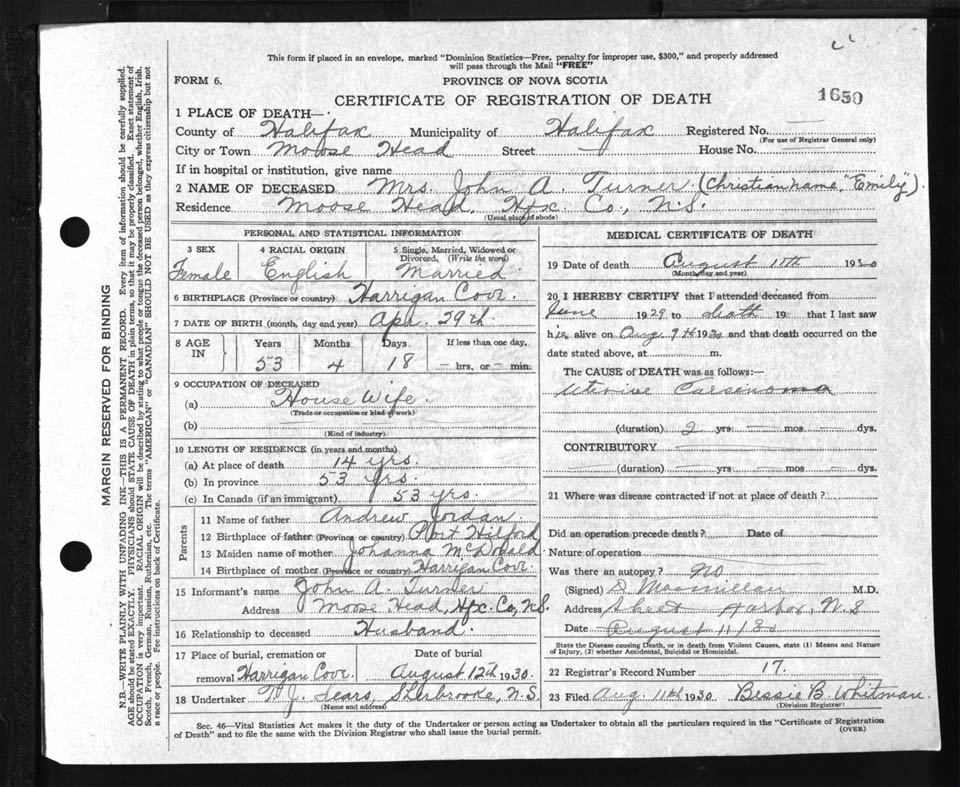 This form if placed in an envelope, marked "Dominion Statistics—Free, penalty for improper use, $300," and properly addressed
will pass through the Mail "FREE"
FORM 6.
PROVINCE OF NOVA SCOTIA
CERTIFICATE OF REGISTRATION OF DEATH
1650
1 PLACE OF DEATH—
County of Halifax Municipality of Halifax Registered No. —
(For use of Registrar General only)
City or Town Moose Head Street — House No. —
If in hospital or institution, give name
2 NAME OF DECEASED Mrs. John A. Turner (Christian name, "Emily").
Residence Moose Head, Hfx. Co., N.S.
(Usual place of abode)
PERSONAL AND STATISTICAL INFORMATION
3 SEX 4 RACIAL ORIGIN 5 Single, Married, Widowed or
Divorced. (Write the word)
Female English Married
6 BIRTHPLACE (Province or country) Harrigan Cove.
7 DATE OF BIRTH (month, day and year) Apr. 29th.
8 AGE IN Years Months Days If less than one day,
53 4 18 — hrs. or — min.
9 OCCUPATION OF DECEASED
(a) House Wife.
(Trade or occupation or kind of work)
(b)
(Kind of industry)
10 LENGTH OF RESIDENCE (in years and months)
(a) At place of death 14 yrs.
(b) In province 53 yrs.
(c) In Canada (if an immigrant) 53 yrs.
Parents
11 Name of father Andrew Jordan.
12 Birthplace of father (Province or country) Port Hilford
13 Maiden name of mother Johanna McDonald.
14 Birthplace of mother (Province or country) Harrigan Cove.
15 Informant's name John A. Turner
Address Moose Head, Hfx. Co, N.S.
16 Relationship to deceased Husband.
17 Place of burial, cremation or removal Harrigan Cove. Date of burial August 12th 1930.
18 Undertaker Sears, Sherbrooke, N.S.
(Name and address)
MEDICAL CERTIFICATE OF DEATH
19 Date of death August 11th 1930
(Month, day and year)
20 I HEREBY CERTIFY that I attended deceased from
June 1929 to death 19 that I last saw
h alive on Aug 9th 1930 and that death occurred on the
date stated above, at m.
The CAUSE of DEATH was as follows:—
Uterine Carsinoma
(duration) 2 yrs. — mos. — dys.
CONTRIBUTORY
(duration) — yrs. — mos. — dys.
21 Where was disease contracted if not at place of death?
Did an operation precede death? Date of
Nature of operation
Was there an autopsy? no
(Signed) D Macmillan M.D.
Address Sheet Harbor, N.S
Date August 11/30
State the Disease causing Death, or in death from Violent Causes, state (1) Means and Nature
of Injury, (2) whether Accidental, Suicidal or Homicidal.
22 Registrar's Record Number 17.
23 Filed Aug. 11th 1930 Bessie B. Whitman.
(Division Registrar)
Sec. 46—Vital Statistics Act makes it the duty of the Undertaker or person acting as Undertaker to obtain all the particulars required in the "Certificate of Registration
of Death" and to file the same with the Division Registrar who shall issue the burial permit.
(OVER)
MARGIN RESERVED FOR BINDING
N.B.—WRITE PLAINLY WITH UNFADING INK—THIS IS A PERMANENT RECORD. Every item of information should be carefully supplied.
AGE should be stated EXACTLY. PHYSICIANS should STATE CAUSE OF DEATH in plain terms, so that it may be properly classified. Exact statement of
OCCUPATION is very important. RACIAL ORIGIN will be described by stating to what people or tongue the deceased person belonged, whether English, Irish,
Scotch, French, German, Russian, Ruthenian, etc. The terms "AMERICAN" or "CANADIAN" SHOULD NOT BE USED as they express citizenship but not
a race or people. Fee instructions on back of Certificate.